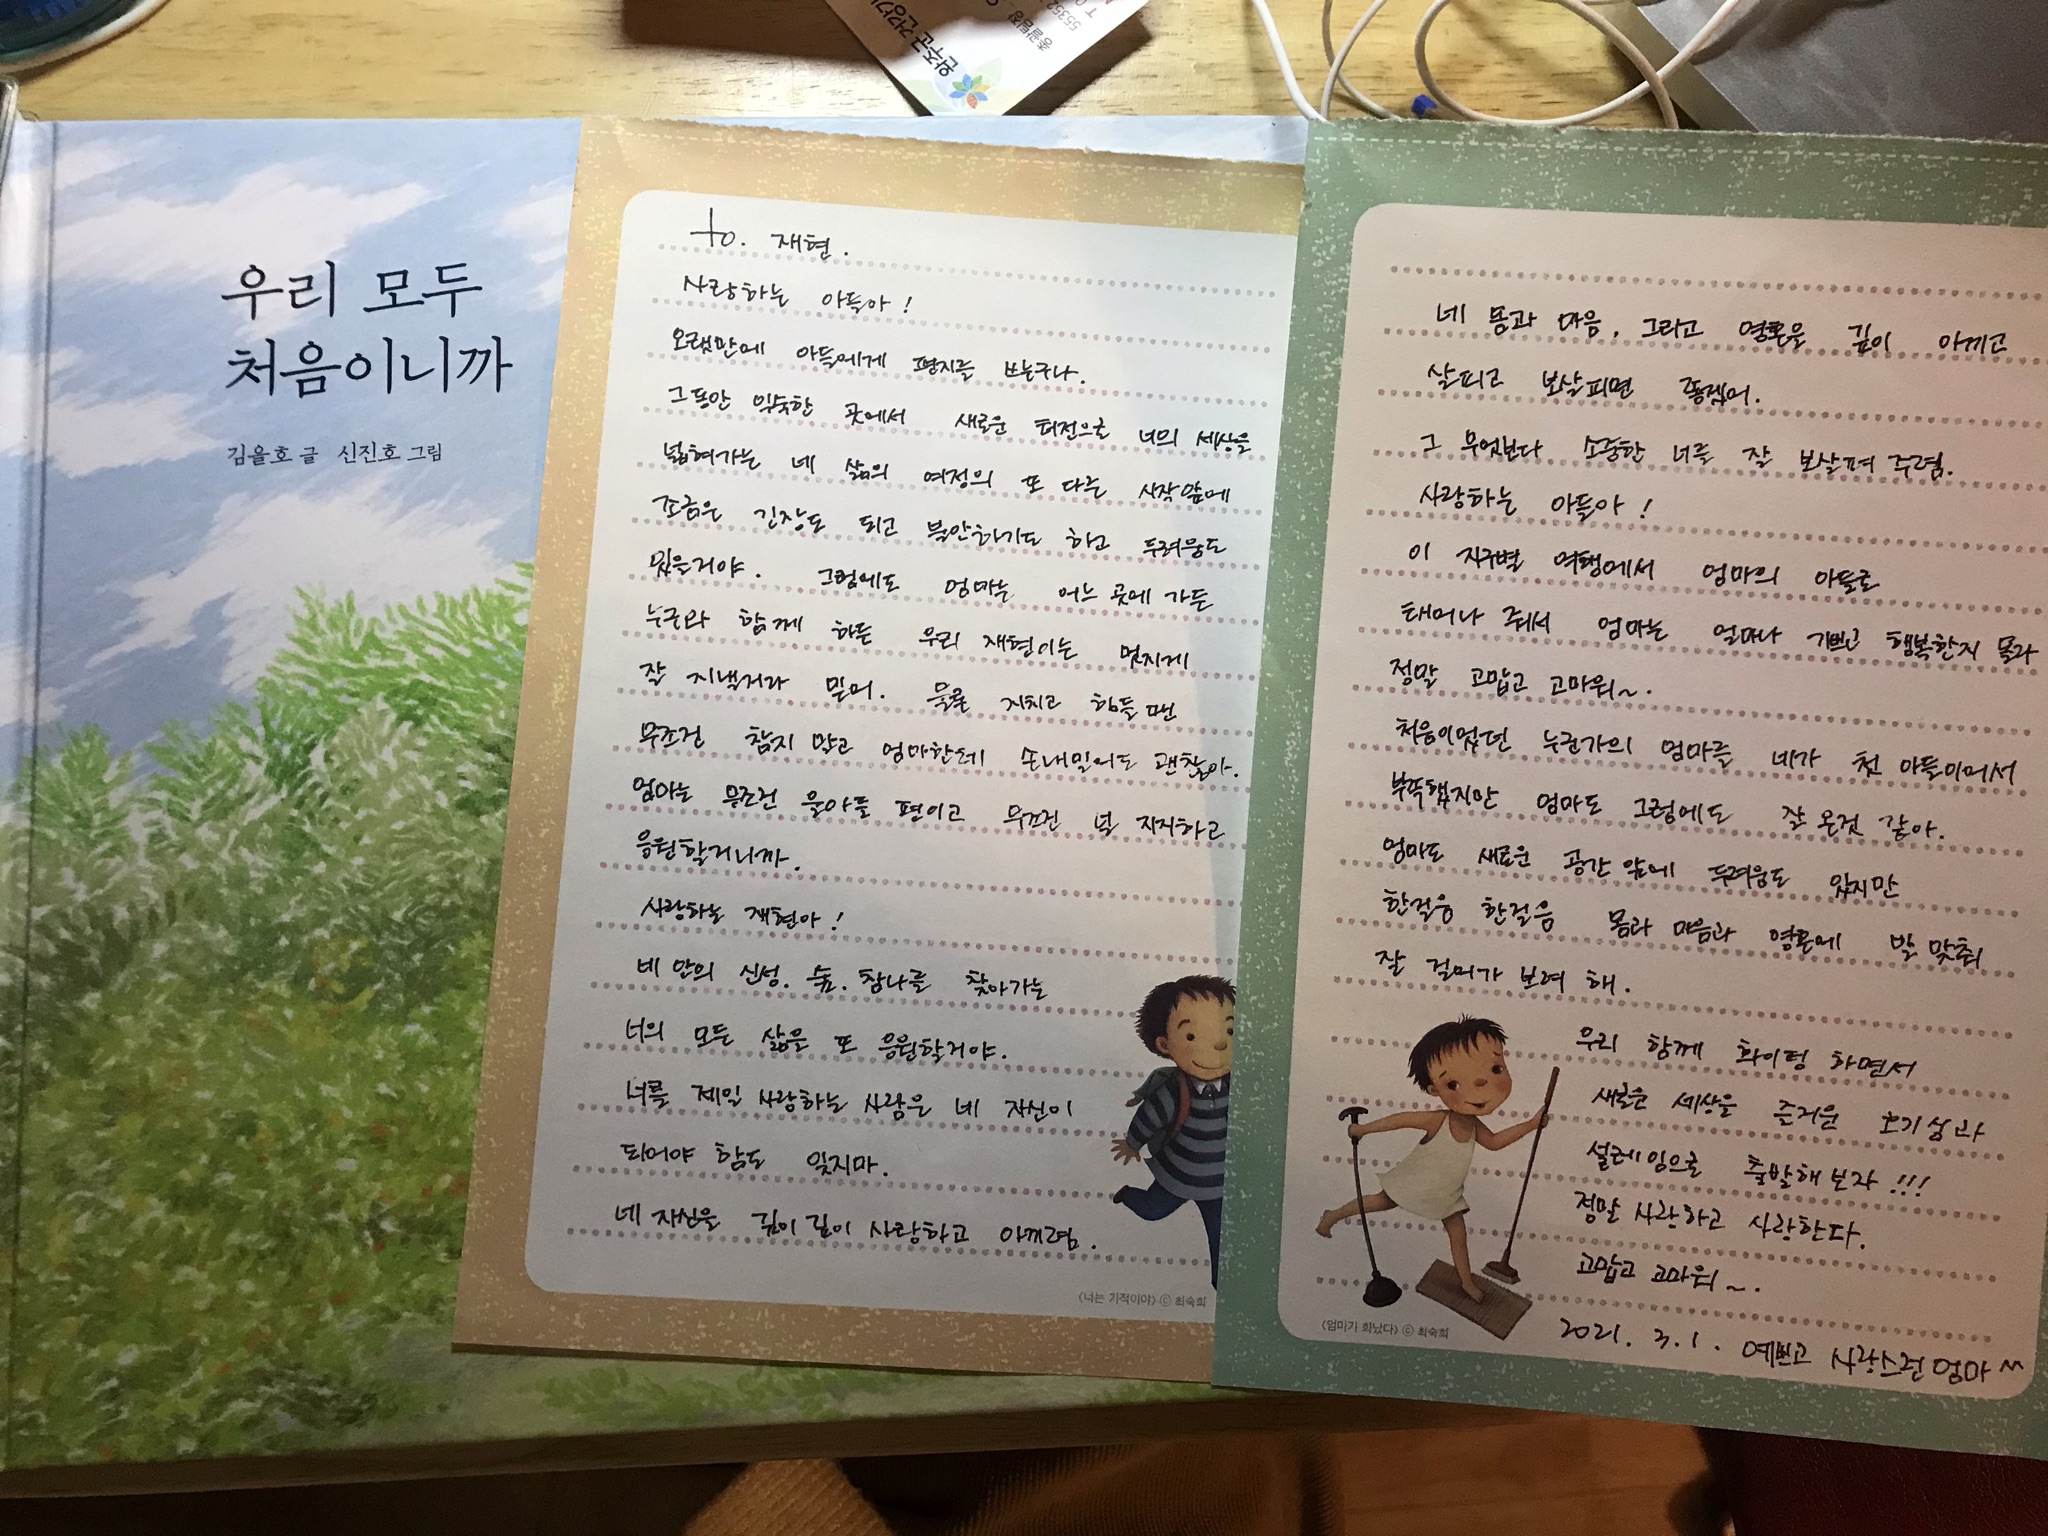 우리 모두
처음이니까
김을호 글 신진호 그림
to. 재현.
사랑하는 아들아!
오랜만에 아들에게 편지를 쓰는구나.
그동안 익숙한 곳에서 새로운 터전으로 너의 세상을
넓혀가는 네 삶의 여정의 또 다른 시작앞에
조금은 긴장도 되고 불안하기도 하고 두려움도
있을거야. 그럼에도 엄마는 어느 곳에 가든
누군와 함께 하든 우리 재현이는 멋지게
잘 지낼거라 믿어. 물론 지치고 힘들땐
무조건 참지 말고 엄마한테 손내밀어도 괜찮아.
엄마는 무조건 울아들 편이고 무조건 널 지지하고
응원할거니까.
사랑하는 재현아!
네 안의 신성. 숲. 참나를 찾아가는
너의 모든 삶을 또 응원할거야.
너를 제일 사랑하는 사람은 네 자신이
되어야 함도 잊지마.
네 자신을 깊이 깊이 사랑하고 아끼렴.
〈너는 기적이야〉 ⓒ 최숙희
네 몸과 마음, 그리고 영혼을 깊이 아끼고
살피고 보살피면 좋겠어.
그 무엇보다 소중한 너를 잘 보살펴 주렴.
사랑하는 아들아!
이 지구별 여행에서 엄마의 아들로
태어나 줘서 엄마는 얼마나 기쁘고 행복한지 몰라
정말 고맙고 고마워~.
처음이었던 누군가의 엄마를 네가 첫 아들이어서
부족했지만 엄마도 그럼에도 잘 온것 같아.
엄마도 새로운 공간 앞에 두려움도 있지만
한걸음 한걸음 몸과 마음과 영혼에 발 맞춰
잘 걸어가 보려 해.
우리 함께 화이팅 하면서
새로운 세상을 즐거운 호기심과
설레임으로 출발해보자!!!
정말 사랑하고 사랑한다.
고맙고 고마워~.
〈엄마가 화났다〉 ⓒ 최숙희
2021. 3. 1. 예쁘고 사랑스런 엄마^^